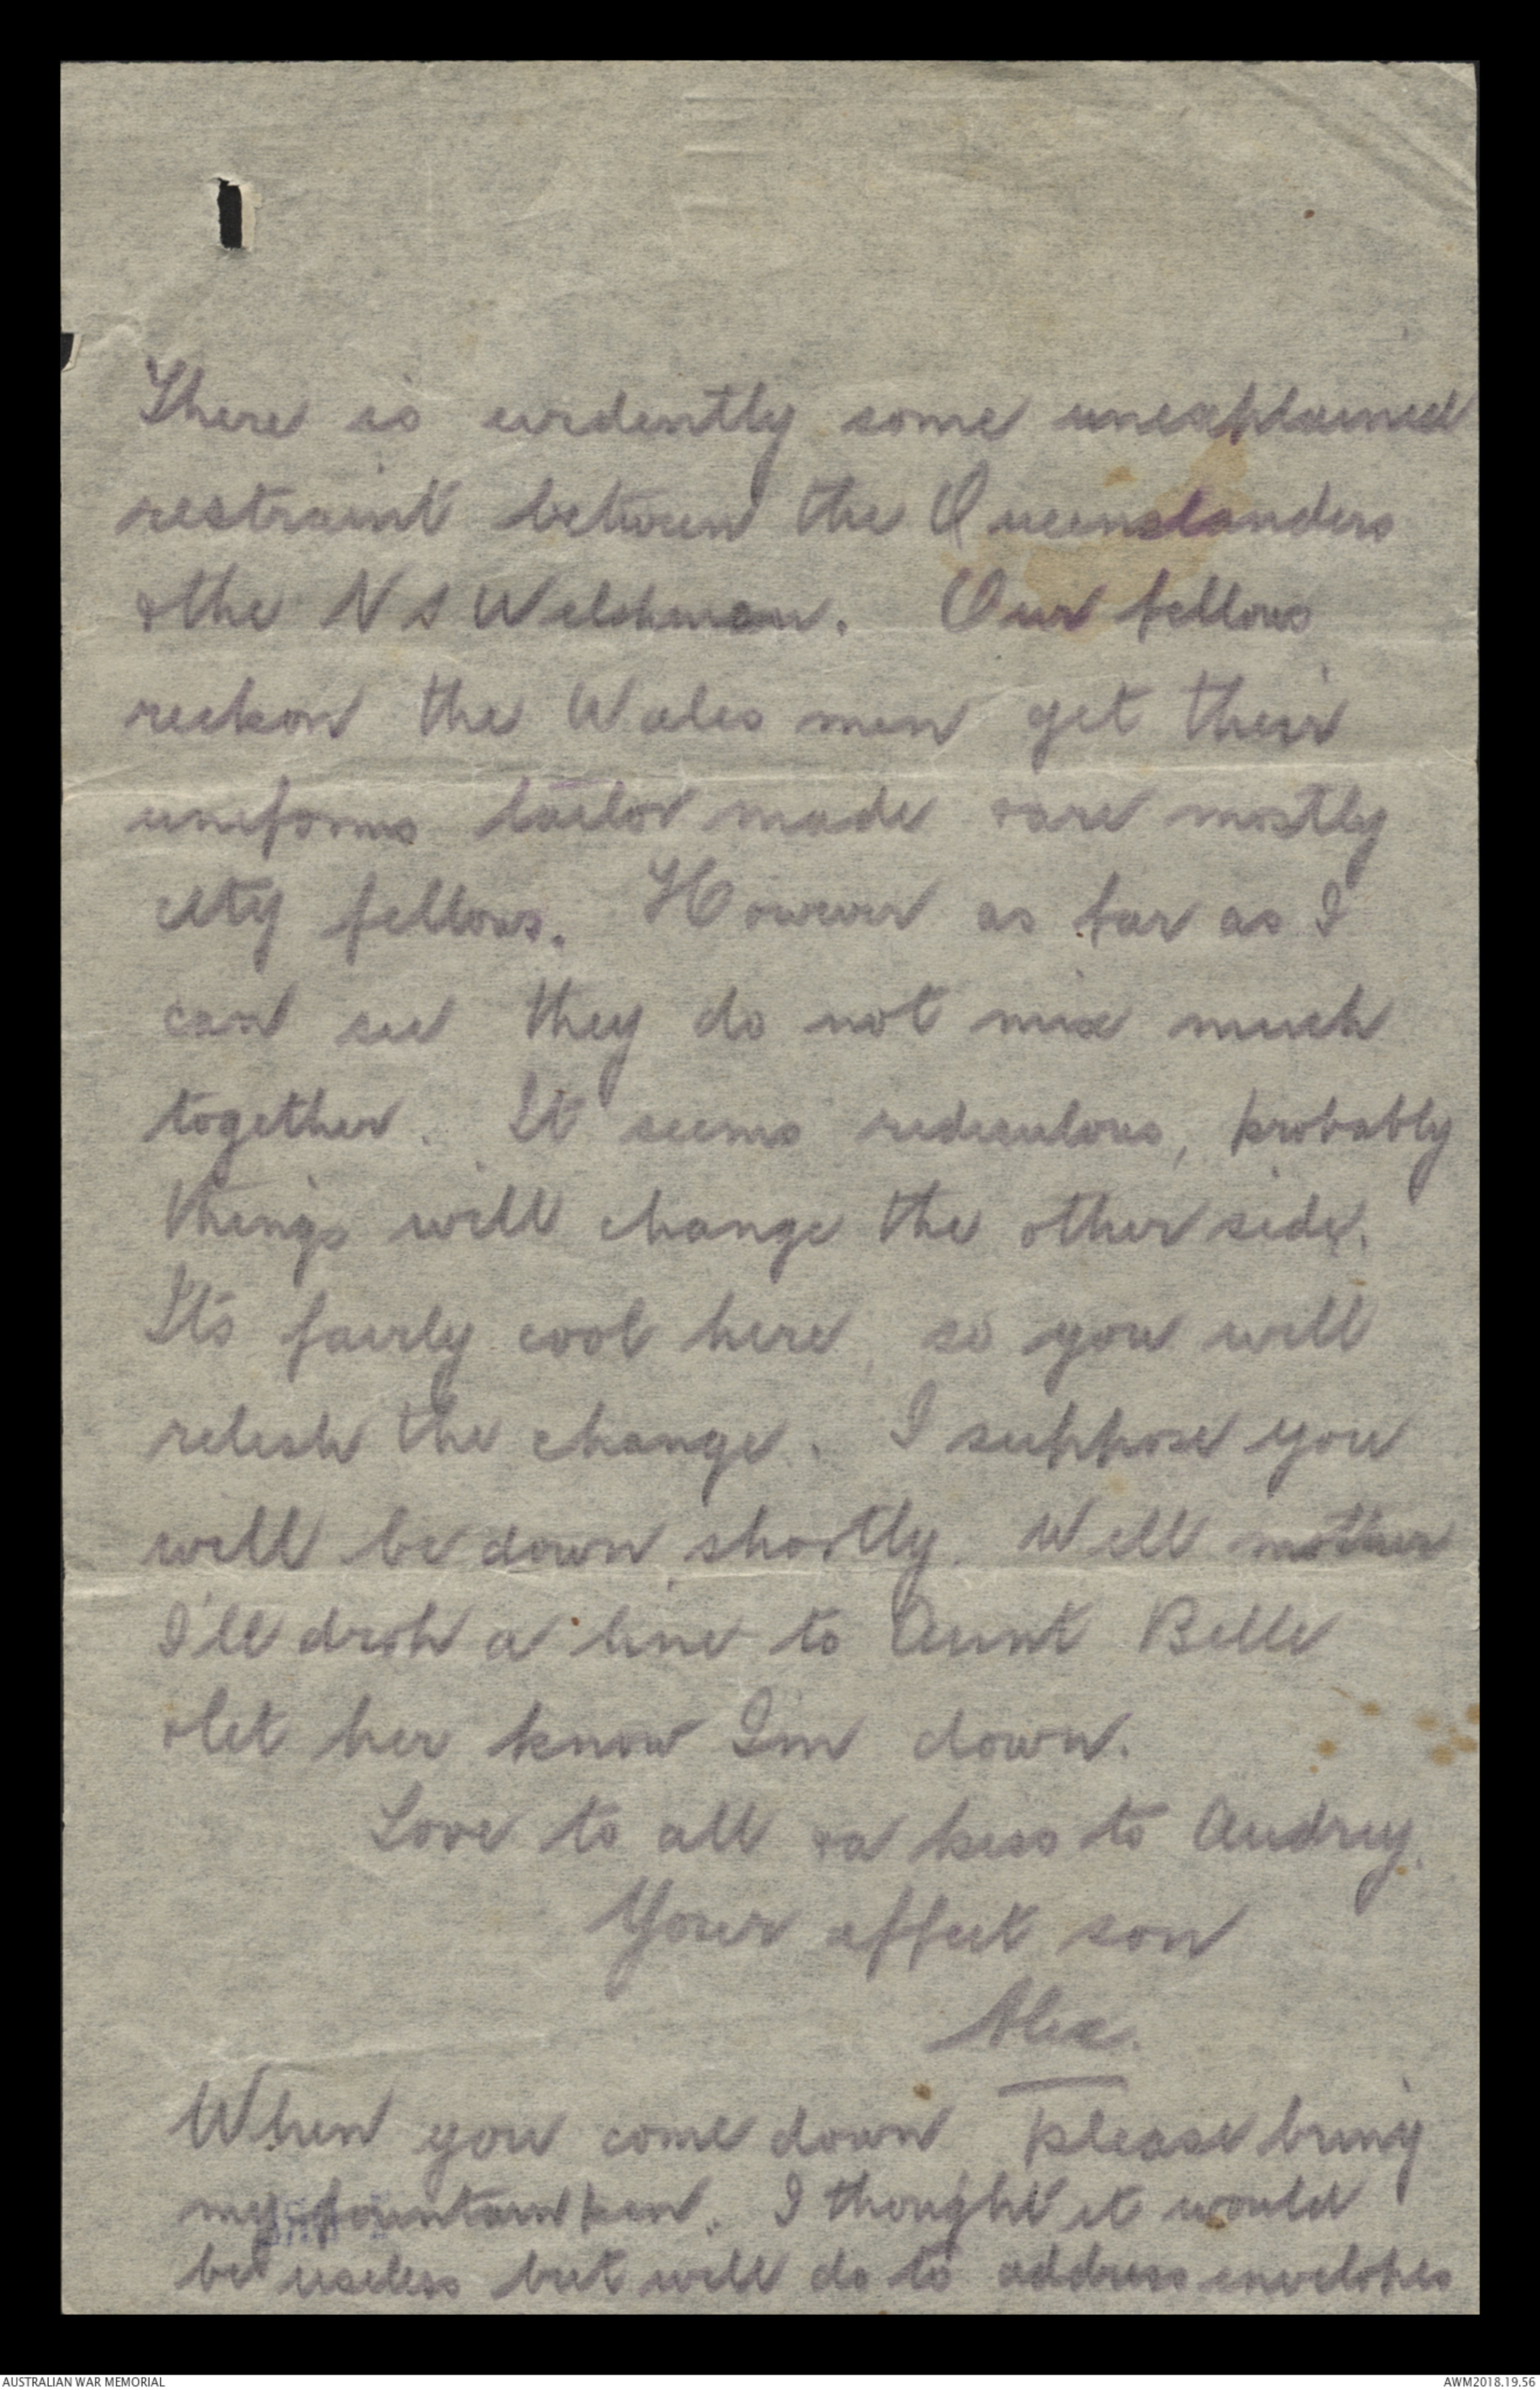 There is evidently some unexplained
restraint between the Queenslanders
& the N S Welshman. Our fellows
reckon the Wales men get their
uniforms tailor made & are mostly
city fellows. However as far as I
can see they do not mix much
together. It seems rediculous, probably
things will change the other side.
Its fairly cool here, so you will
relish the change. I suppose you
will be down shortly. Well mother
I'll drop a line to Aunt Belle
& let her know I'm down.
Love to all & a kiss to Audrey.
Your affect son
Alex.
When you come down please bring
my fountain pen. I thought it would
be useless but will do to address envelopes
AUSTRALIAN WAR MEMORIAL
AWM2018.19.56